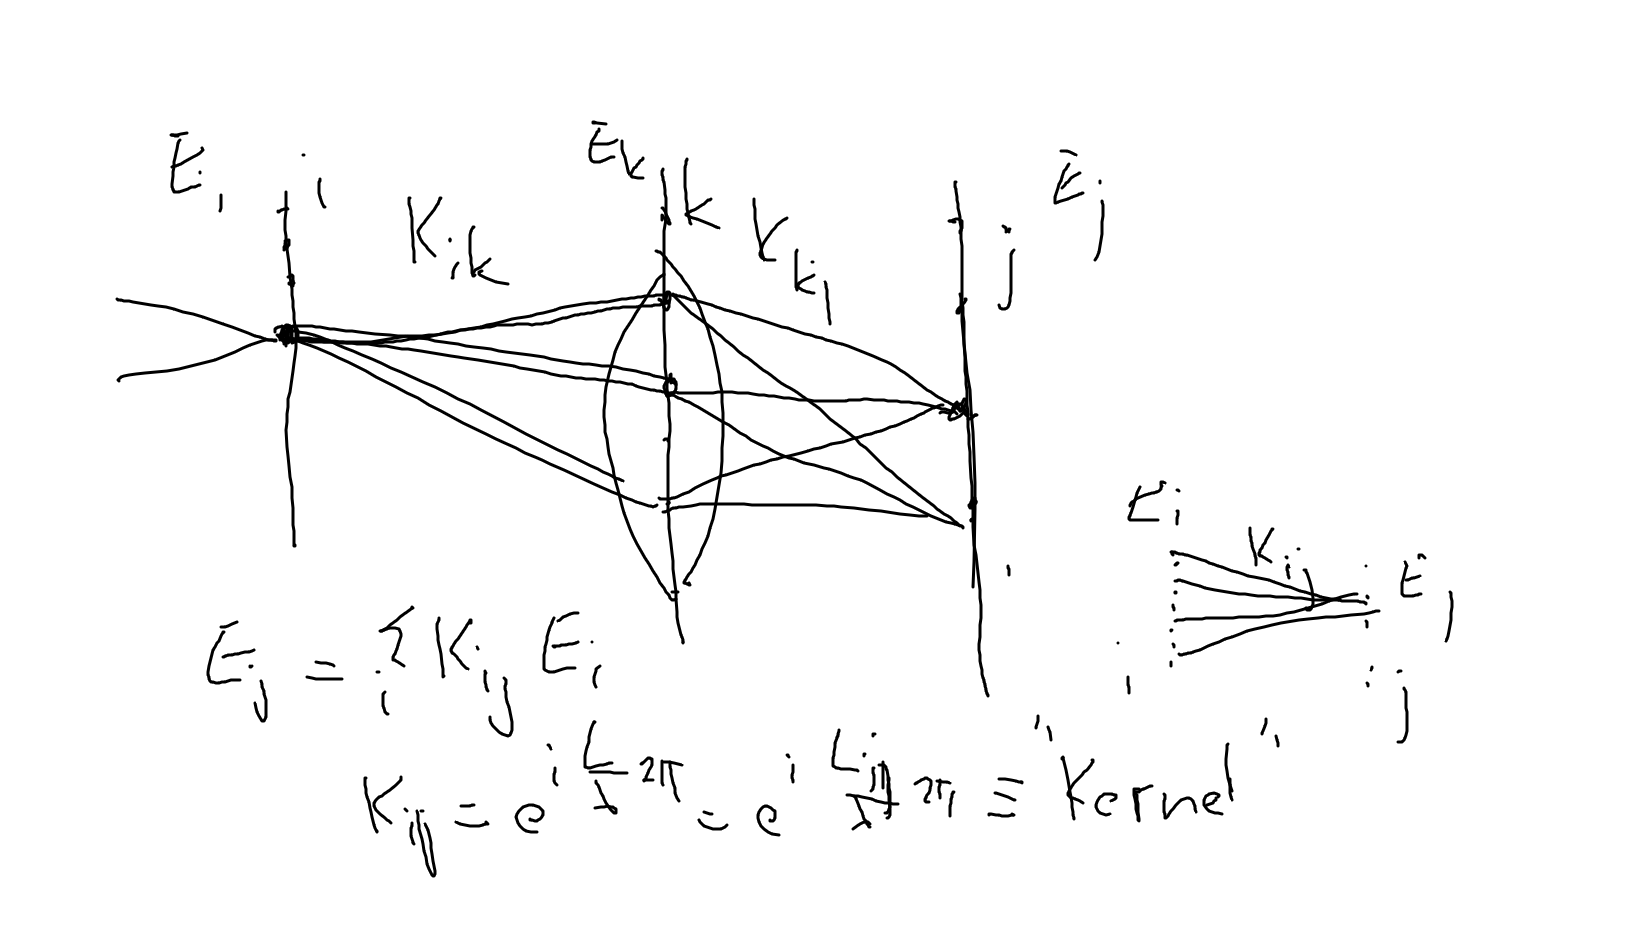 E_i i K_ik E_k k K_kj j E_j
E_i K_ij E_j
i j
E_j = Σ_i K_ij E_i
K_ij = e^{i L/λ 2π} = e^{i L_ij/λ 2π} ≡ "Kernel"